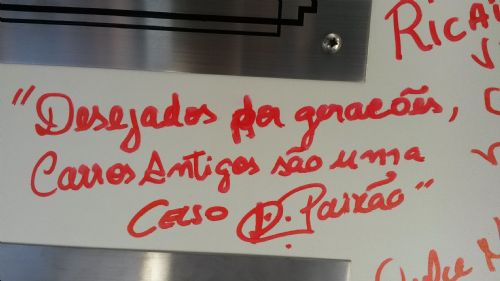 "Desejados por gerações,
Carros Antigos são uma
Celso D. Paixão"
Ricar